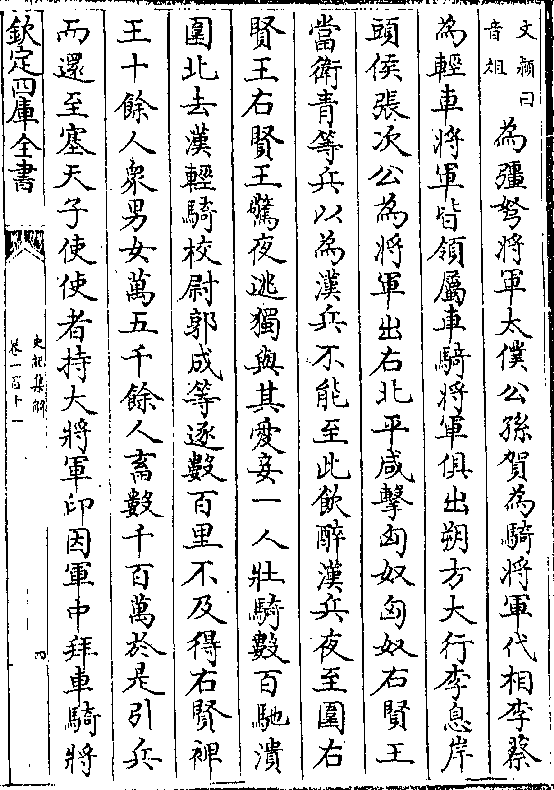 文頴曰
音俎
為彊弩將軍太僕公孫賀為騎將軍代相李蔡
為輕車將軍皆領屬車騎將軍俱出朔方大行李息岸
頭侯張次公為將軍出右北平咸擊匈奴匈奴右賢王
當衛青等兵以為漢兵不能至此飲醉漢兵夜至圍右
賢王右賢王驚夜逃獨與其愛妾一人壯騎數百馳潰
圍北去漢輕騎校尉郭成等逐數百里不及得右賢裨
王十餘人衆男女萬五千餘人畜數千百萬於是引兵
而還至塞天子使使者持大將軍印因軍中拜車騎將
欽定四庫全書
史記集解
卷一百十一
四